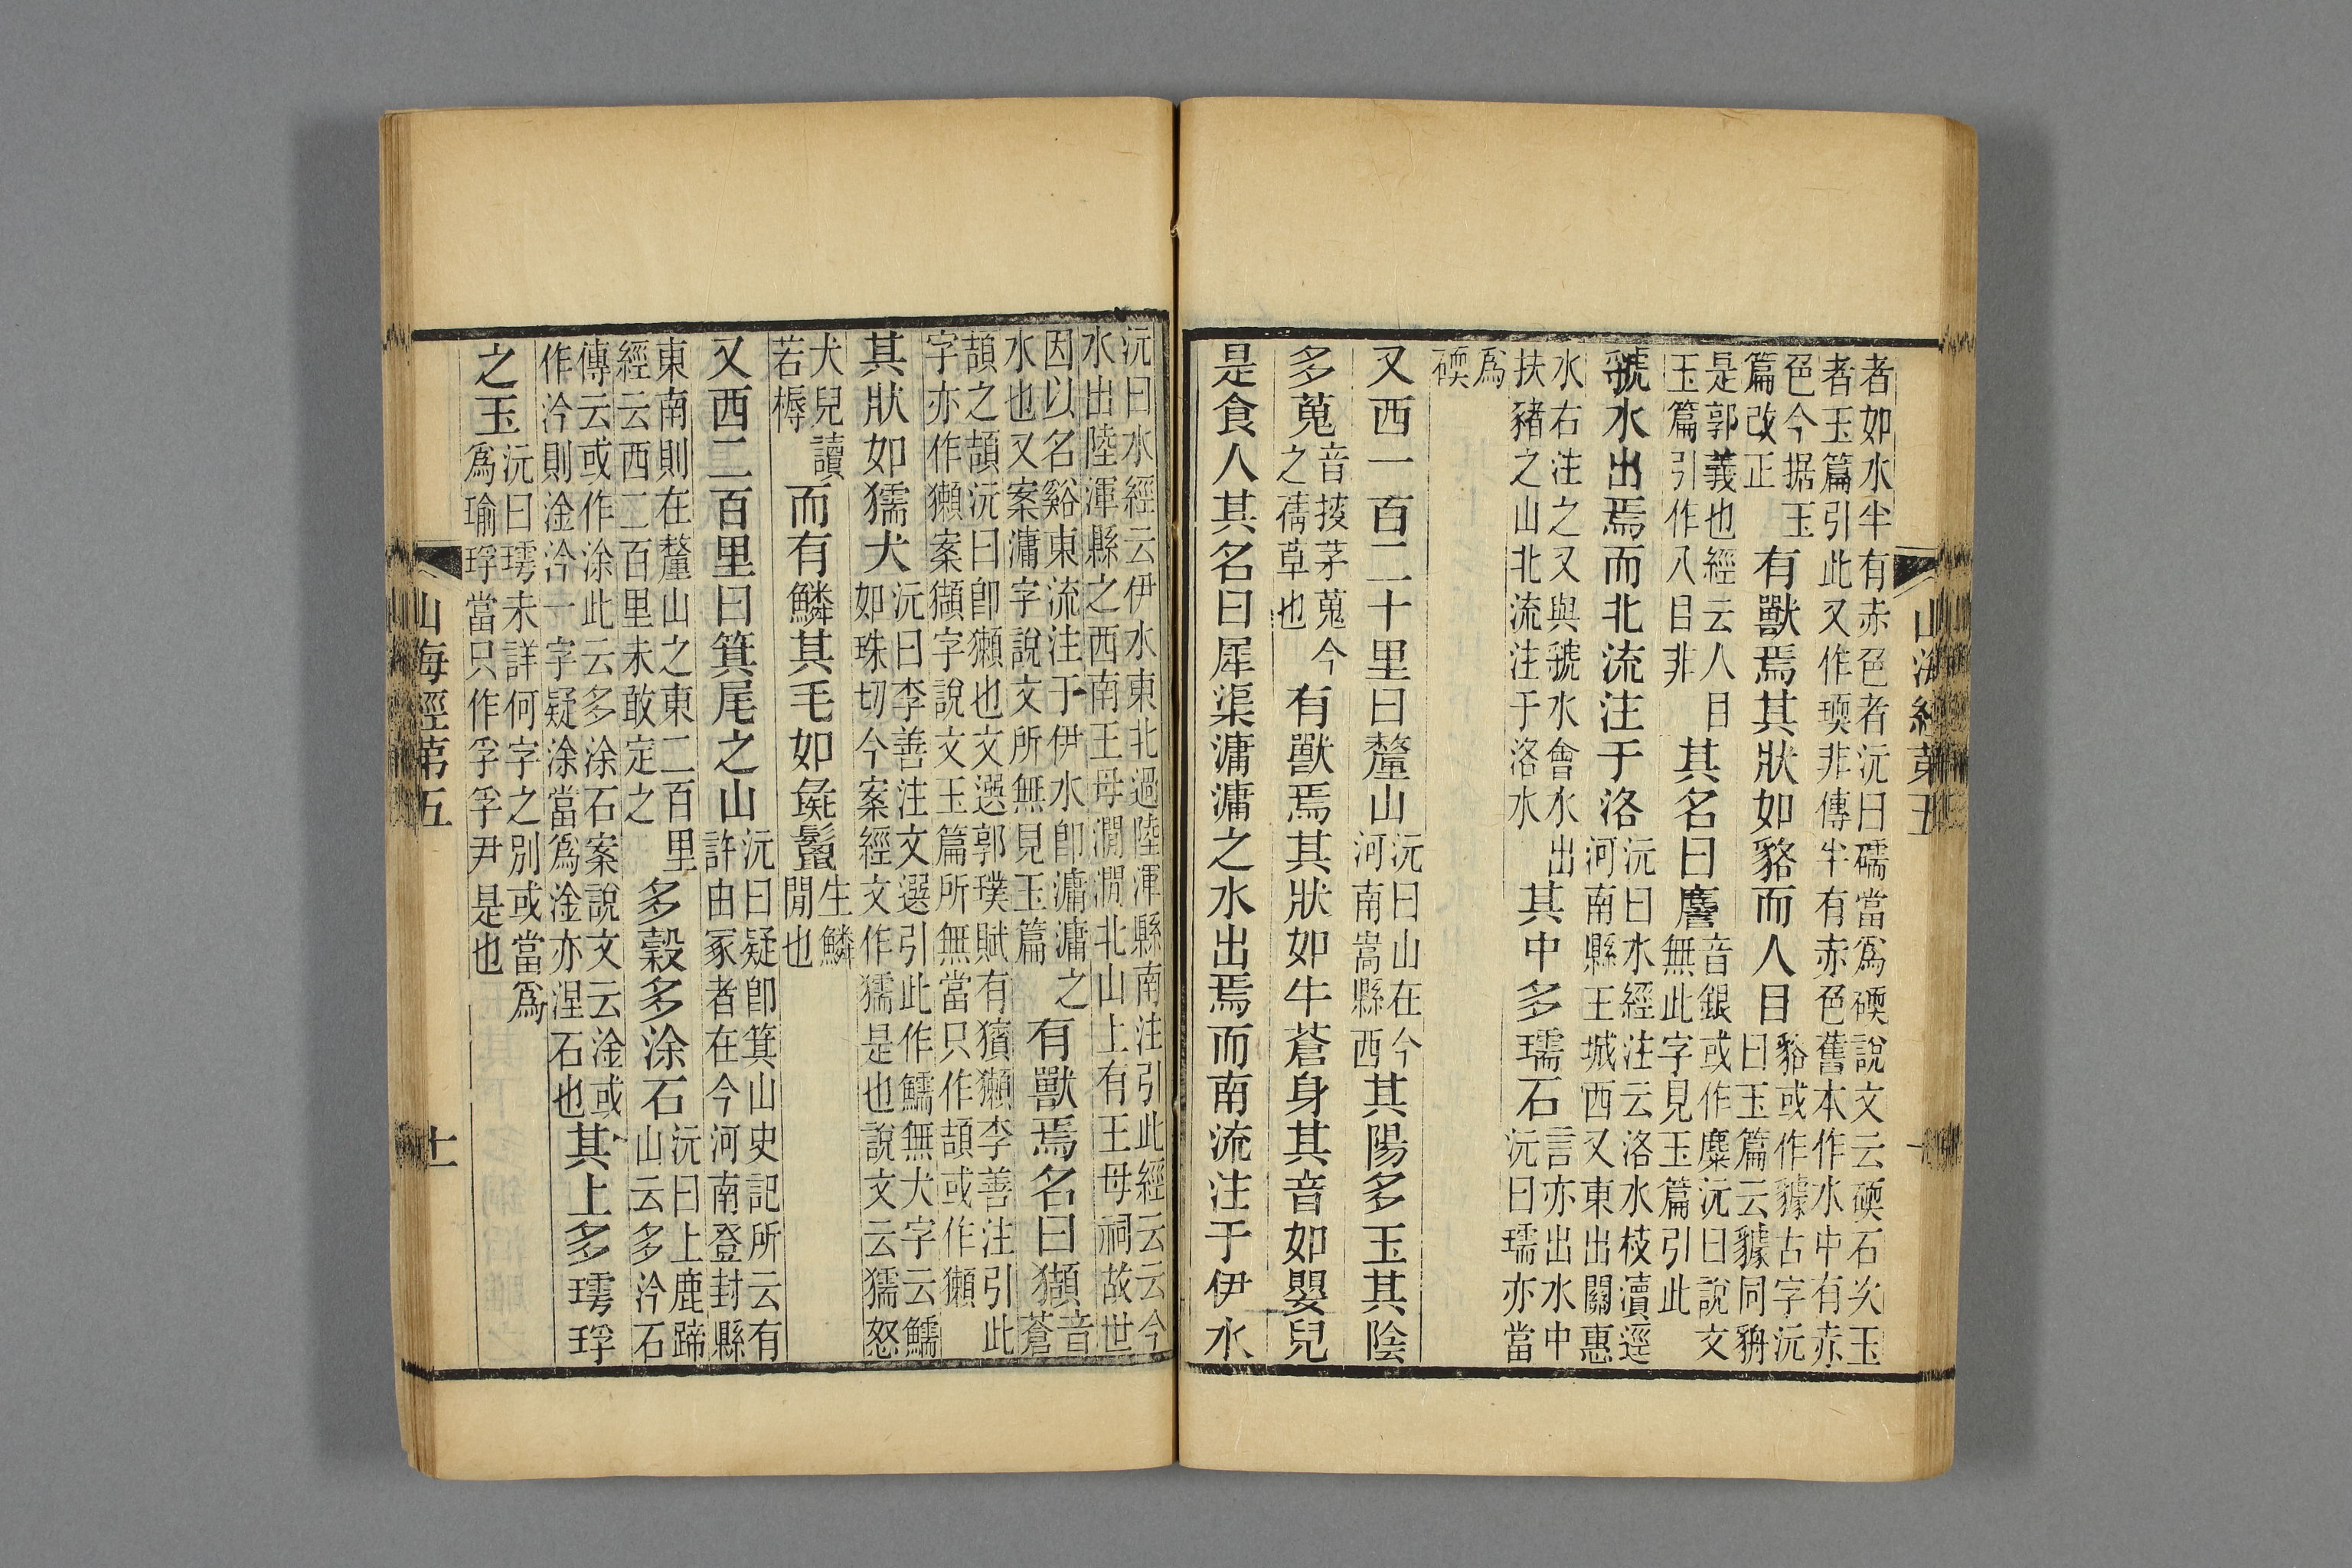 山海經第五
者如水半有赤色者沅曰礝當爲碝說文云碝石次玉
者玉篇引此又作瑌非傳半有赤色舊本作水中有赤
色今据玉
篇改正
有獸焉其狀如貉而人目
貉或作䝞古字沅
曰玉篇云䝞同貈
是郭義也經云人目
玉篇引作八目非
其名曰䴦
音銀或作麋沅曰說文
無此字見玉篇引此
虢水出焉而北流注于洛
沅曰水經注云洛水枝瀆逕
河南縣王城西又東出關惠
水右注之又與虢水會水出
扶豬之山北流注于洛水
其中多瓀石
言亦出水中
沅曰瓀亦當
爲
碝
又西一百二十里曰釐山
沅曰山在今
河南嵩縣西
其陽多玉其陰
多蒐
音搜茅蒐今
之蒨草也
有獸焉其狀如牛蒼身其音如嬰兒
是食人其名曰犀渠滽滽之水出焉而南流注于伊水
沅曰水經云伊水東北過陸渾縣南注引此經云云今
水出陸渾縣之西南王母澗澗北山上有王母祠故世
因以名谿東流注于伊水卽滽滽之
水也又案滽字說文所無見玉篇
有獸焉名曰𤢺
音蒼
頡之頡沅曰卽獺也文選郭璞賦有獱獺李善注引此
字亦作獺案𤢺字說文玉篇所無當只作頡或作獺
其狀如獳犬
沅曰李善注文選引此作鱬無犬字云鱬
如珠切今案經文作獳是也說文云獳怒
犬皃讀
若槈
而有鱗其毛如彘鬣
生鱗
閒也
又西二百里曰箕尾之山
沅曰疑卽箕山史記所云有
許由冢者在今河南登封縣
東南則在釐山之東二百里
經云西二百里未敢定之
多榖多涂石
沅曰上鹿蹄
山云多泠石
傳云或作涂此云多涂石案說文云淦或
作泠則淦泠一字疑涂當爲淦亦涅石也
其上多㻬琈
之玉
沅曰㻬未詳何字之別或當爲
爲瑜琈當只作孚孚尹是也
山海經第五
十一